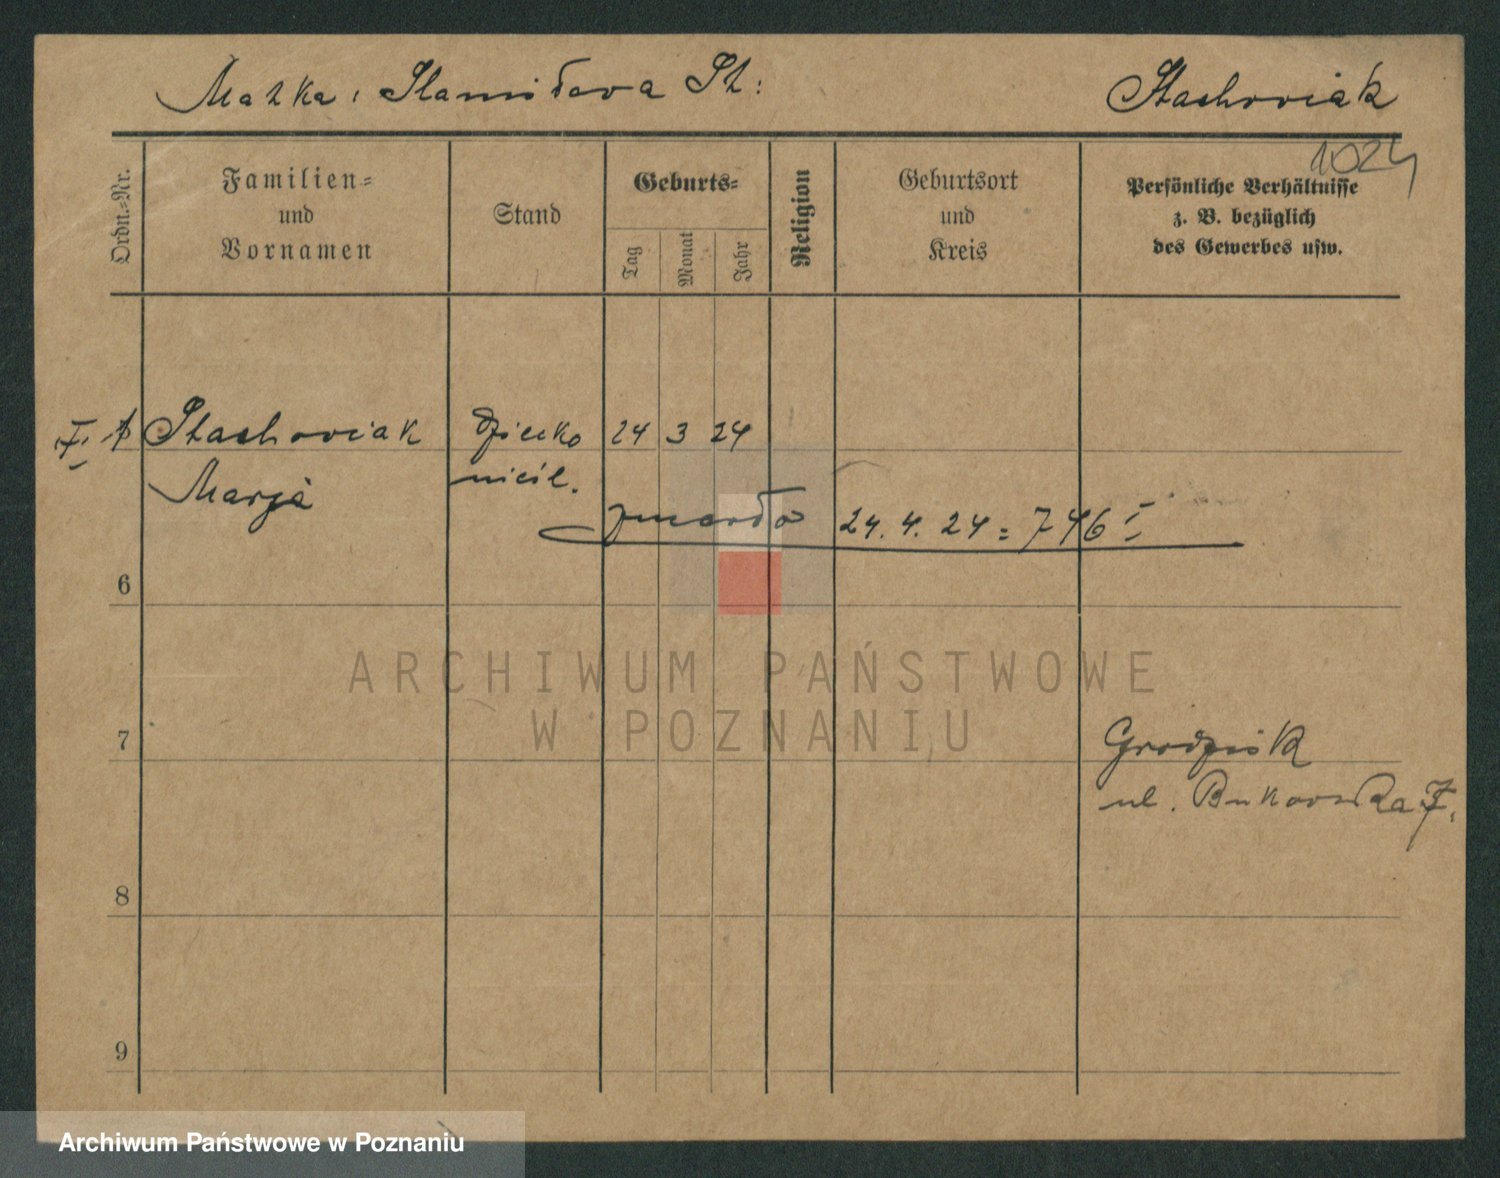 Matka: Stanisława St:
Stachowiak
1024
Ordn.=Nr.
Familien=
und
Vornamen
Stand
Geburts=
Tag
Monat
Jahr
Religion
Geburtsort
und
Kreis
Persönliche Verhältnisse
z. B. bezüglich
des Gewerbes usw.
Stachowiak
dziecko
24 3 24
Marja
nieśl.
zmarło 24. 4. 24 = 746 I
6
ARCHIWUM PAŃSTWOWE
W POZNANIU
7
Grodzisk
ul. Bukowska 7.
8
9
Archiwum Państwowe w Poznaniu